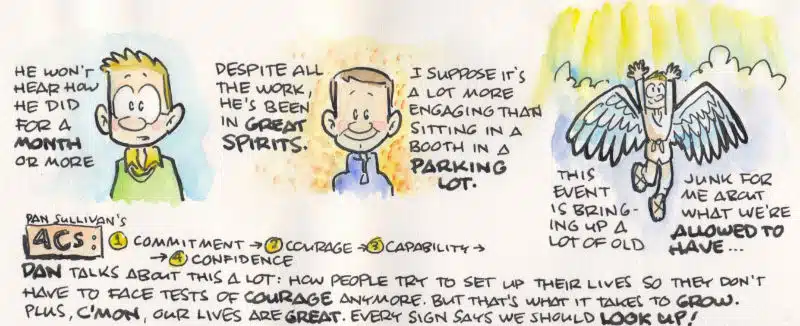 HE WON'T
HEAR HOW
HE DID
FOR A
MONTH
OR MORE
DESPITE ALL
THE WORK,
HE'S BEEN
IN GREAT
SPIRITS.
I SUPPOSE IT'S
A LOT MORE
ENGAGING THAN
SITTING IN A
BOOTH IN A
PARKING
LOT.
THIS
EVENT
IS BRING-
ING UP A
LOT OF OLD
JUNK FOR
ME ABOUT
WHAT WE'RE
ALLOWED TO
HAVE...
DAN SULLIVAN'S
4CS: 1 COMMITMENT → 2 COURAGE → 3 CAPABILITY →
→ 4 CONFIDENCE
DAN TALKS ABOUT THIS A LOT: HOW PEOPLE TRY TO SET UP THEIR LIVES SO THEY DON'T
HAVE TO FACE TESTS OF COURAGE ANYMORE. BUT THAT'S WHAT IT TAKES TO GROW.
PLUS, C'MON, OUR LIVES ARE GREAT. EVERY SIGN SAYS WE SHOULD LOOK UP!